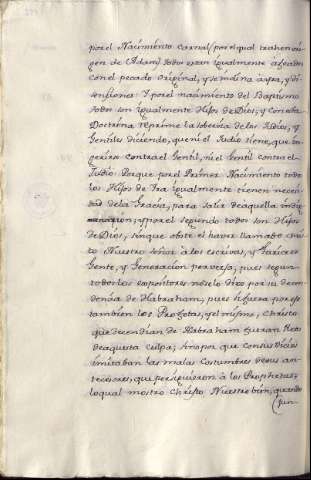 por el Nacimiento carnal (por el qual trahen ori-
gen de Adam) todos estan igualmente afeados
con el pecado original, y se mina ayra, y di-
senziones: Y por el nacimiento del Baptismo
todos son igualmente Hijos de Dios, y con esta
Doctrina reprime la sobervia de los Judios, y
Gentiles diciendo, que ni el Judio tiene, que in-
gerirse contra el Gentil, ni el Gentil contra el
Judio. Porque por el Primer Nacimiento todos
los Hijos de Yra igualmente tienen neces-
dad de la Gracia, para salir de aquella indig-
nacion; y por el segundo todos son Hijos
de Dios, sin que obste el haver llamado Chris-
to Nuestro Señor à los escrivas, y Fariceos
Gente, y Generacion perversa; pues segun
todos los expositores no se lo dixo por su decen-
dencia de Habraham, pues si fuera por esso
tambien los Profetas, y el mismo Christo
que decendian de Habraham fueran Reos
de aquesta culpa; sino por que con sus Vicios
imitaban las malas Costumbres de sus an-
tecesores, que persiguieron à los Prophetas,
lo qual mostro Christo Nuestro bien, quando